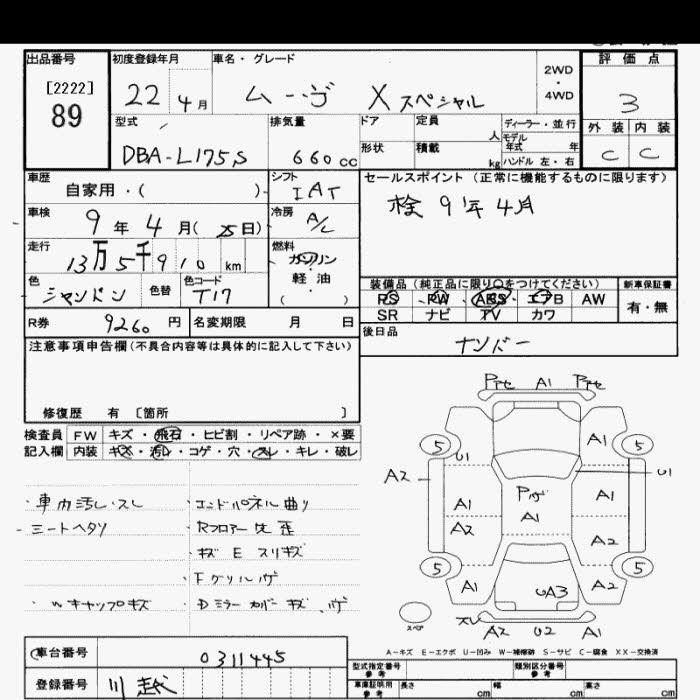 出品番号 初度登録年月 車名・グレード 評価点
[2222]
89
22年4月 ムーヴ Xスペシャル
2WD
・
4WD
3
型式 排気量 ドア 定員 ディーラー・並行 外装 内装
人 モデル年式 年
DBA-L175S 660cc 形状 積載 kg ハンドル 左・右 C C
車歴 シフト セールスポイント (正常に機能するものに限ります)
自家用・( ) IAT
検 9年4月
車検 冷房
9年4月(25日) A/C
走行 燃料
13万5千910km ガソリン
軽油
( )
色 色替 色コード 装備品 (純正品に限り○をつけてください) 新車保証書
シャンパン T17 PS PW ABS エアB AW 有・無
SR ナビ TV カワ
R券 9260円 名変期限 月 日 後日品
注意事項申告欄(不具合内容等は具体的に記入して下さい)
修復歴 有 〔箇所 〕
検査員 FW キズ・飛石・ヒビ割・リペア跡・×要
記入欄 内装 キズ・汚レ・コゲ・穴・スレ・キレ・破レ
A1
5 A1 5
U1
A2 U1
A1 A1
A1
A2 A2
5 5
A1 A3 A2
スペア
A2 U2 A1
・車内汚し・スレ ・エンドパネル曲り
・シートヘタリ ・Rフロアー 歪
・キズ E スリキズ
・Fグリルハゲ
・Wキャップキズ ・Dミラーカバーキズ、ハゲ
A-キズ E-エクボ U-凹み W-補修跡 S-サビ C-腐食 XX-交換済
車台番号 0311445
登録番号 川越
型式指定番号 参考 類別区分番号 参考
車庫証明用 参考 長さ cm 幅 cm 高さ cm